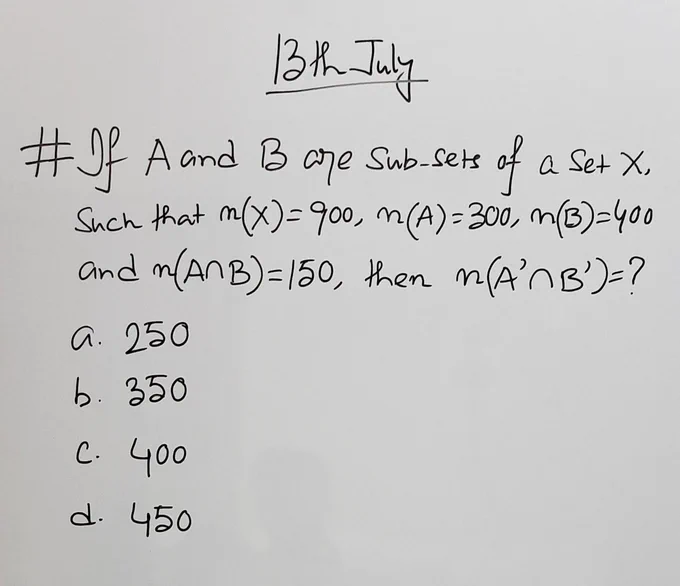 13th July
# If A and B are Sub-sets of a Set X,
Such that n(X)=900, n(A)=300, n(B)=400
and n(A∩B)=150, then n(A'∩B')=?
a. 250
b. 350
c. 400
d. 450